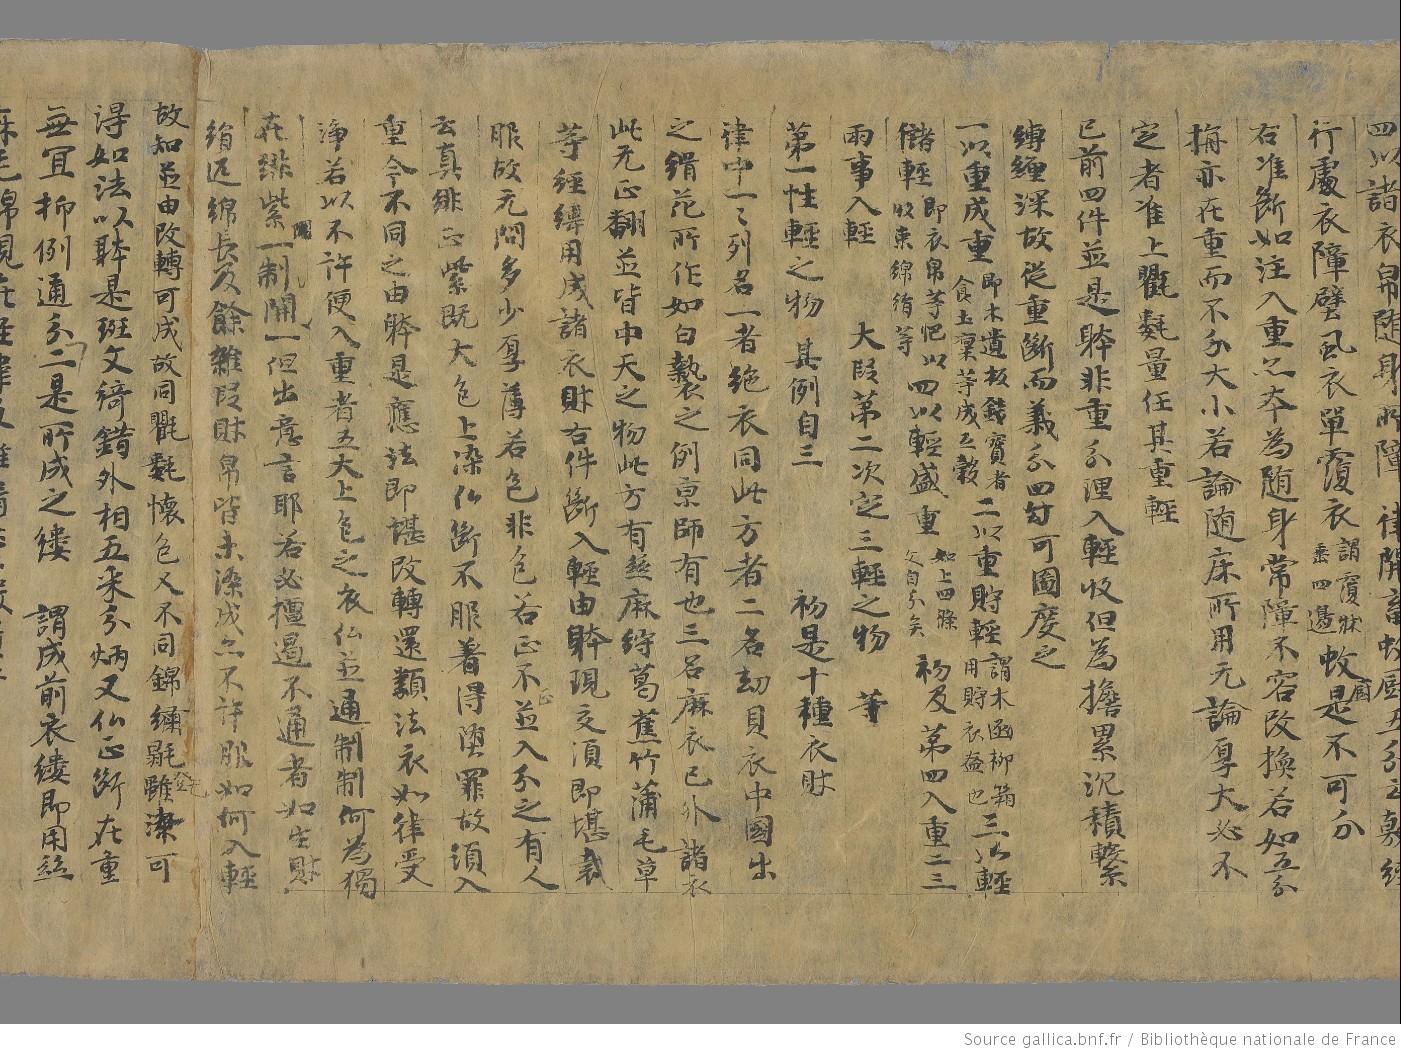 四以諸衣帛随身所障 律開畜蚊厨五分之
行處衣障壁風衣單覆衣謂覆牀垂四邊蚊厨是不可分
右准断如注入重亦本為随身常障不容改換若如五分
搆亦在重而不分大小若論随床所用无論厚大必不
定者准上氍毹量任其重輕
已前四件並是體非重分理入輕收但為擔累沉積繫
縛纏深故從重断而義分四句可圖度之
一以重成重即木遺板錢寶者食土稟等成五穀二以重貯輕謂木函柳箱用貯衣盋也三以輕
儲輕即衣帛等袍以收束綿絹等四以輕盛重如上四條文自分矣初及第四入重二三
兩事入輕 大段第二次定三輕之物 等
第一性輕之物 其例自三 初是十種衣財
律中一々列名一者絁衣同此方者二名劫貝衣中國出
之縜花所作如白㲲之例京師有也三名麻衣已外諸衣
此无正翻並皆中天之物此方有絲麻紵葛蕉竹蒲毛草
等經縛用成諸衣財右件断入輕由體現交湏即堪裁
服故无問多少厚薄若色非色若正不正並入分之有人
云真緋正紫既大色上染仏断不服著得堕罪故須入
重今不同之由體是應法即堪改轉還類法衣如律受
淨若以不許便入重者五大上色之衣仏並通制制何為獨
在緋紫一制開一但出意言耶若必擅遏不通者如生財
絹疋綿長及餘雜段財帛皆未染成亦不許服如何入輕
故知並由改轉可成故同氍毹懷色又不同錦繡毾㲪雖染可
得如法以體是斑文綺錯外相五采分炳又仏正断在重
無冝抑例通分二是所成之縷 謂成前衣縷即用絲